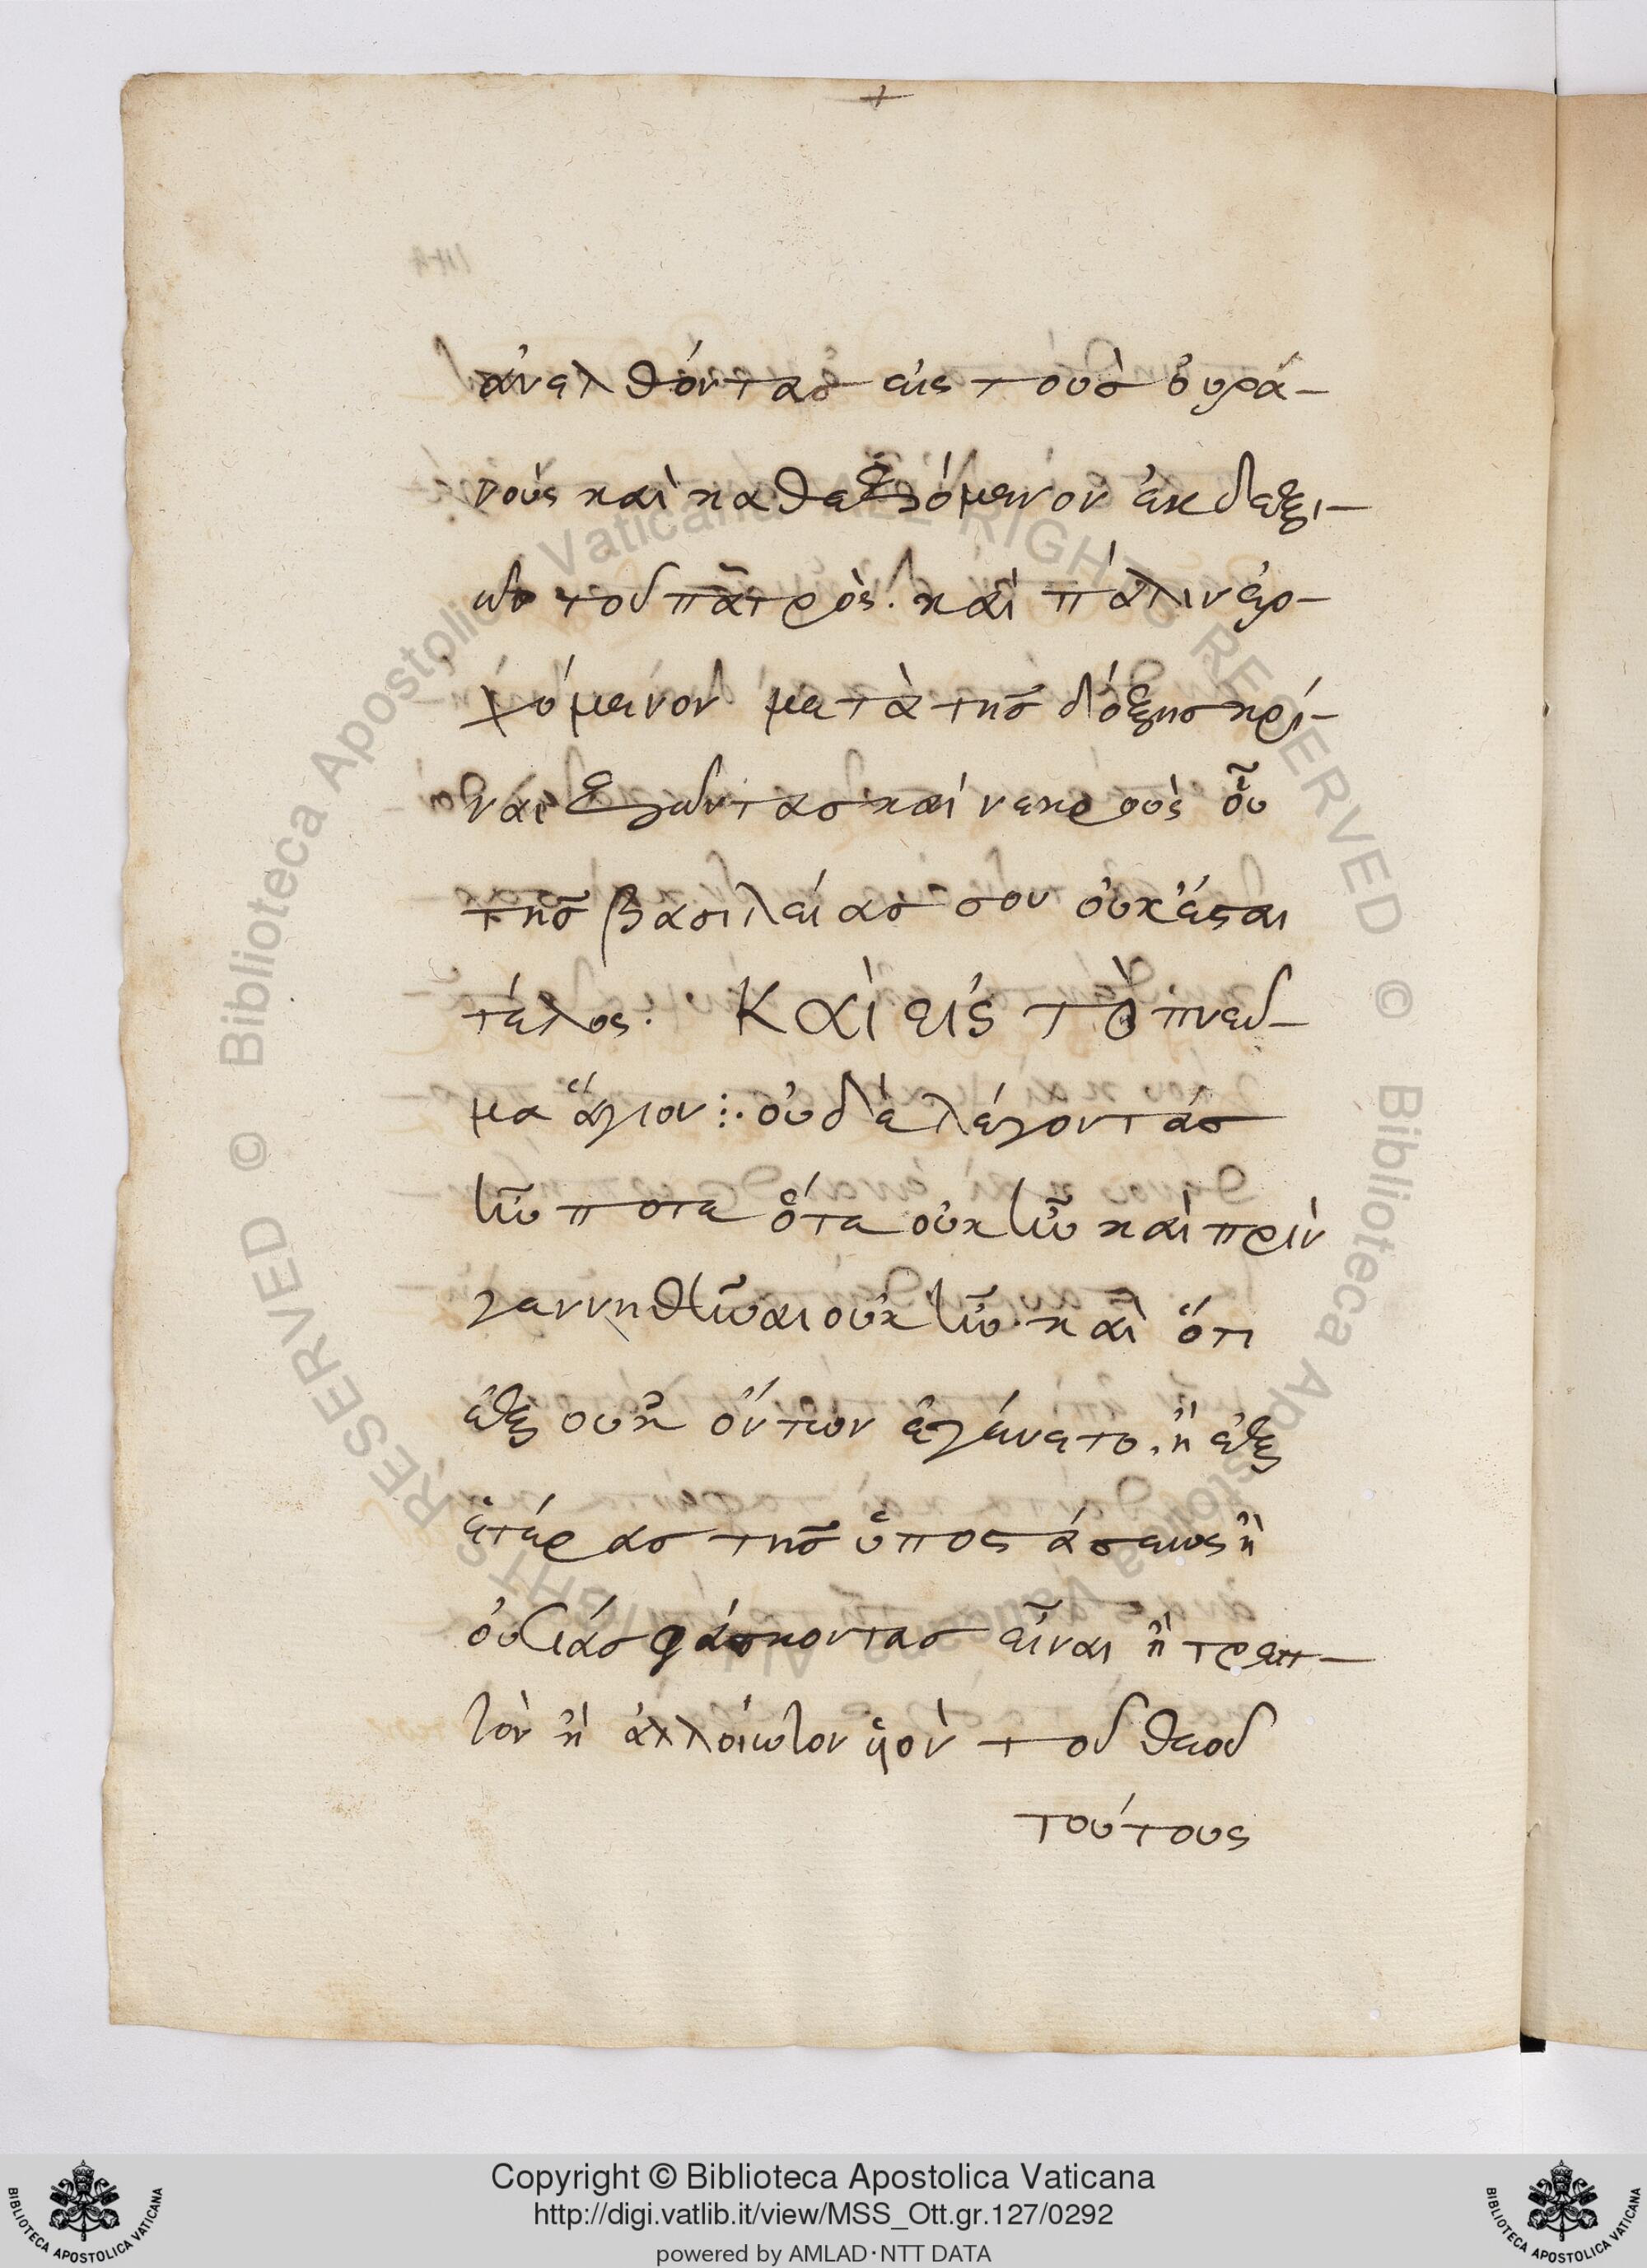 ἀνελθόντας εἰς τοὺς οὐρα-
νοὺς καὶ καθεζόμενον ἐκ δεξι-
ῶν τοῦ πατρὸς. καὶ πάλιν ἐρ-
χόμενον μετὰ τῆς δόξης κρί-
ναι ζῶντας καὶ νεκροὺς οὗ
τῆς βασιλείας σου οὐκ ἔσται
τέλος. Καὶ εἰς τὸ πνεῦ-
μα ἅγιον :· οὐ δὲ λέγοντας
ἦν ποτε ὅτε οὐκ ἦν καὶ πρὶν
γεννηθῆναι οὐκ ἦν. καὶ ὅτι
ἐξ οὐκ ὄντων ἐγένετο. ἢ ἐξ
ἑτέρας τῆς ὑποστάσεως ἢ
οὐσίας φάσκοντας εἶναι ἢ τρεπ-
τὸν ἢ ἀλλοίωτον ὑὸν τοῦ θεοῦ
τούτους
Copyright © Biblioteca Apostolica Vaticana
http://digi.vatlib.it/view/MSS_Ott.gr.127/0292
powered by AMLAD·NTT DATA
BIBLIOTECA APOSTOLICA VATICANA
BIBLIOTECA APOSTOLICA VATICANA
© Biblioteca Apostolica Vaticana ALL RIGHTS RESERVED
© Biblioteca Apostolica Vaticana ALL RIGHTS RESERVED